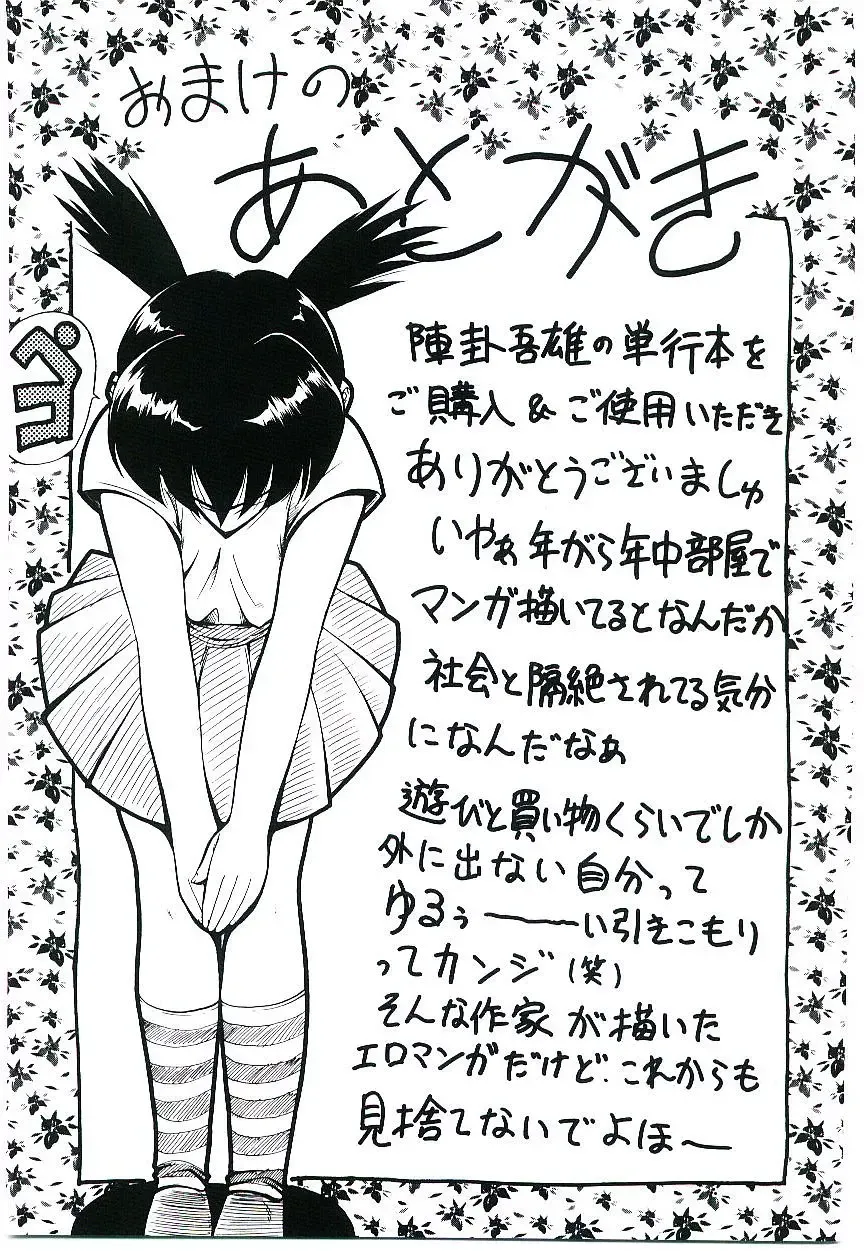 おまけの
あとがき
ペコ
陣卦吾雄の単行本を
ご購入&ご使用いただき
ありがとうございましゅ
いやぁ年がら年中部屋で
マンガ描いてるとなんだか
社会と隔絶されてる気分
になんだなぁ
遊びと買い物くらいでしか
外に出ない自分って
ゆるぅ———い引きこもり
ってカンジ(笑)
そんな作家が描いた
エロマンガだけど、これからも
見捨てないでよほ〜